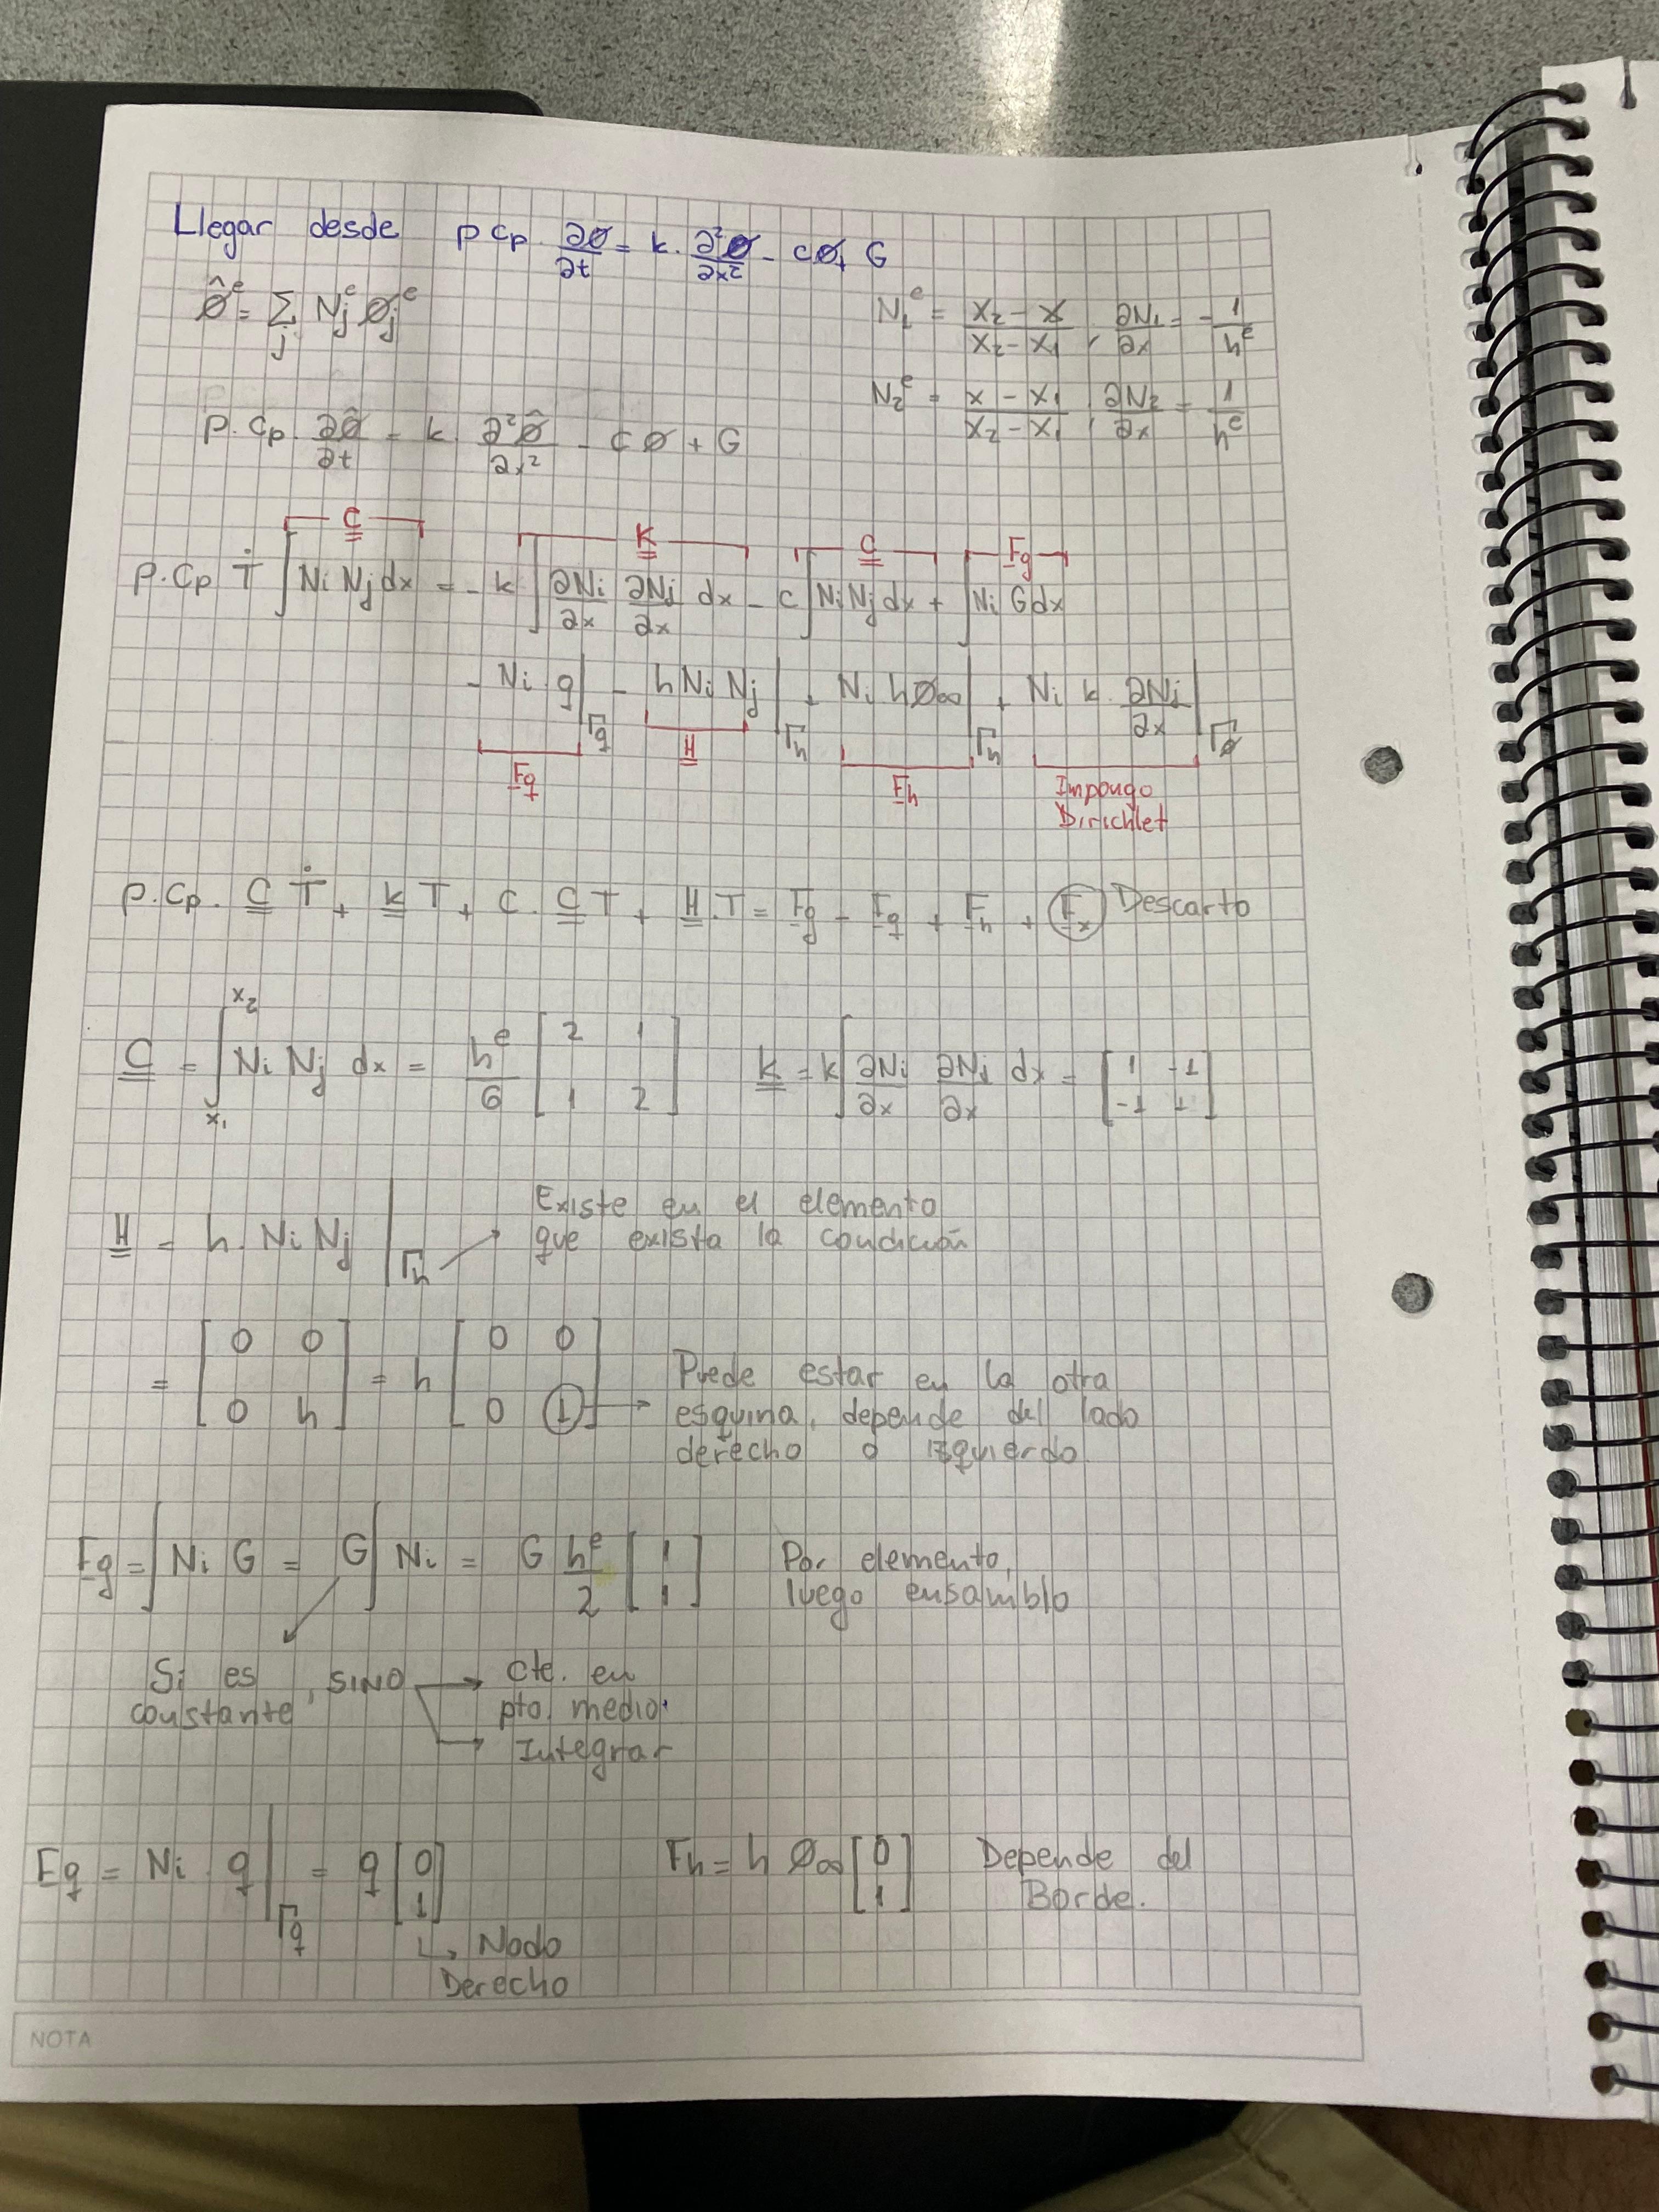 Llegar desde ρ Cp. ∂Ø/∂t = k. ∂²Ø/∂x² - cØ + G
Ø̂ᵉ = Σⱼ Nⱼᵉ Øⱼᵉ
N₁ᵉ = (x₂ - x)/(x₂ - x₁), ∂N₁/∂x = -1/hᵉ
N₂ᵉ = (x - x₁)/(x₂ - x₁), ∂N₂/∂x = 1/hᵉ
ρ. Cp. ∂Ø̂/∂t = k. ∂²Ø̂/∂x² - c Ø + G
C K C Fg
ρ. Cp Ṫ ∫ Ni Nj dx = - k ∫ ∂Ni/∂x ∂Nj/∂x dx - c ∫ Ni Nj dx + ∫ Ni G dx
- Ni q |Γq - h Ni Nj |Γh + Ni h Ø∞ |Γh + Ni k. ∂Nj/∂x |ΓØ
Fq H Fh Impongo
Dirichlet
ρ. Cp. C Ṫ + K T + C. C T + H. T = Fg - Fq + Fh + Fx Descarto
C = ∫ₓ₁ˣ² Ni Nj dx = hᵉ/6 [2 1; 1 2] K = k ∫ ∂Ni/∂x ∂Nj/∂x dx = [1 -1; -1 1]
H = h. Ni Nj |Γh
Existe en el elemento
que exista la condición
= [0 0; 0 h] = h [0 0; 0 1]
Puede estar en la otra
esquina, depende del lado
derecho o izquierdo.
Fg = ∫ Ni G = G ∫ Ni = G hᵉ/2 [1; 1]
Por elemento,
luego ensamblo
Si es
constante, SINO
Cte. en
pto. medio.
Integrar
Fq = Ni. q |Γq = q [0; 1]
Nodo
Derecho
Fh = h Ø∞ [0; 1]
Depende del
Borde.
NOTA